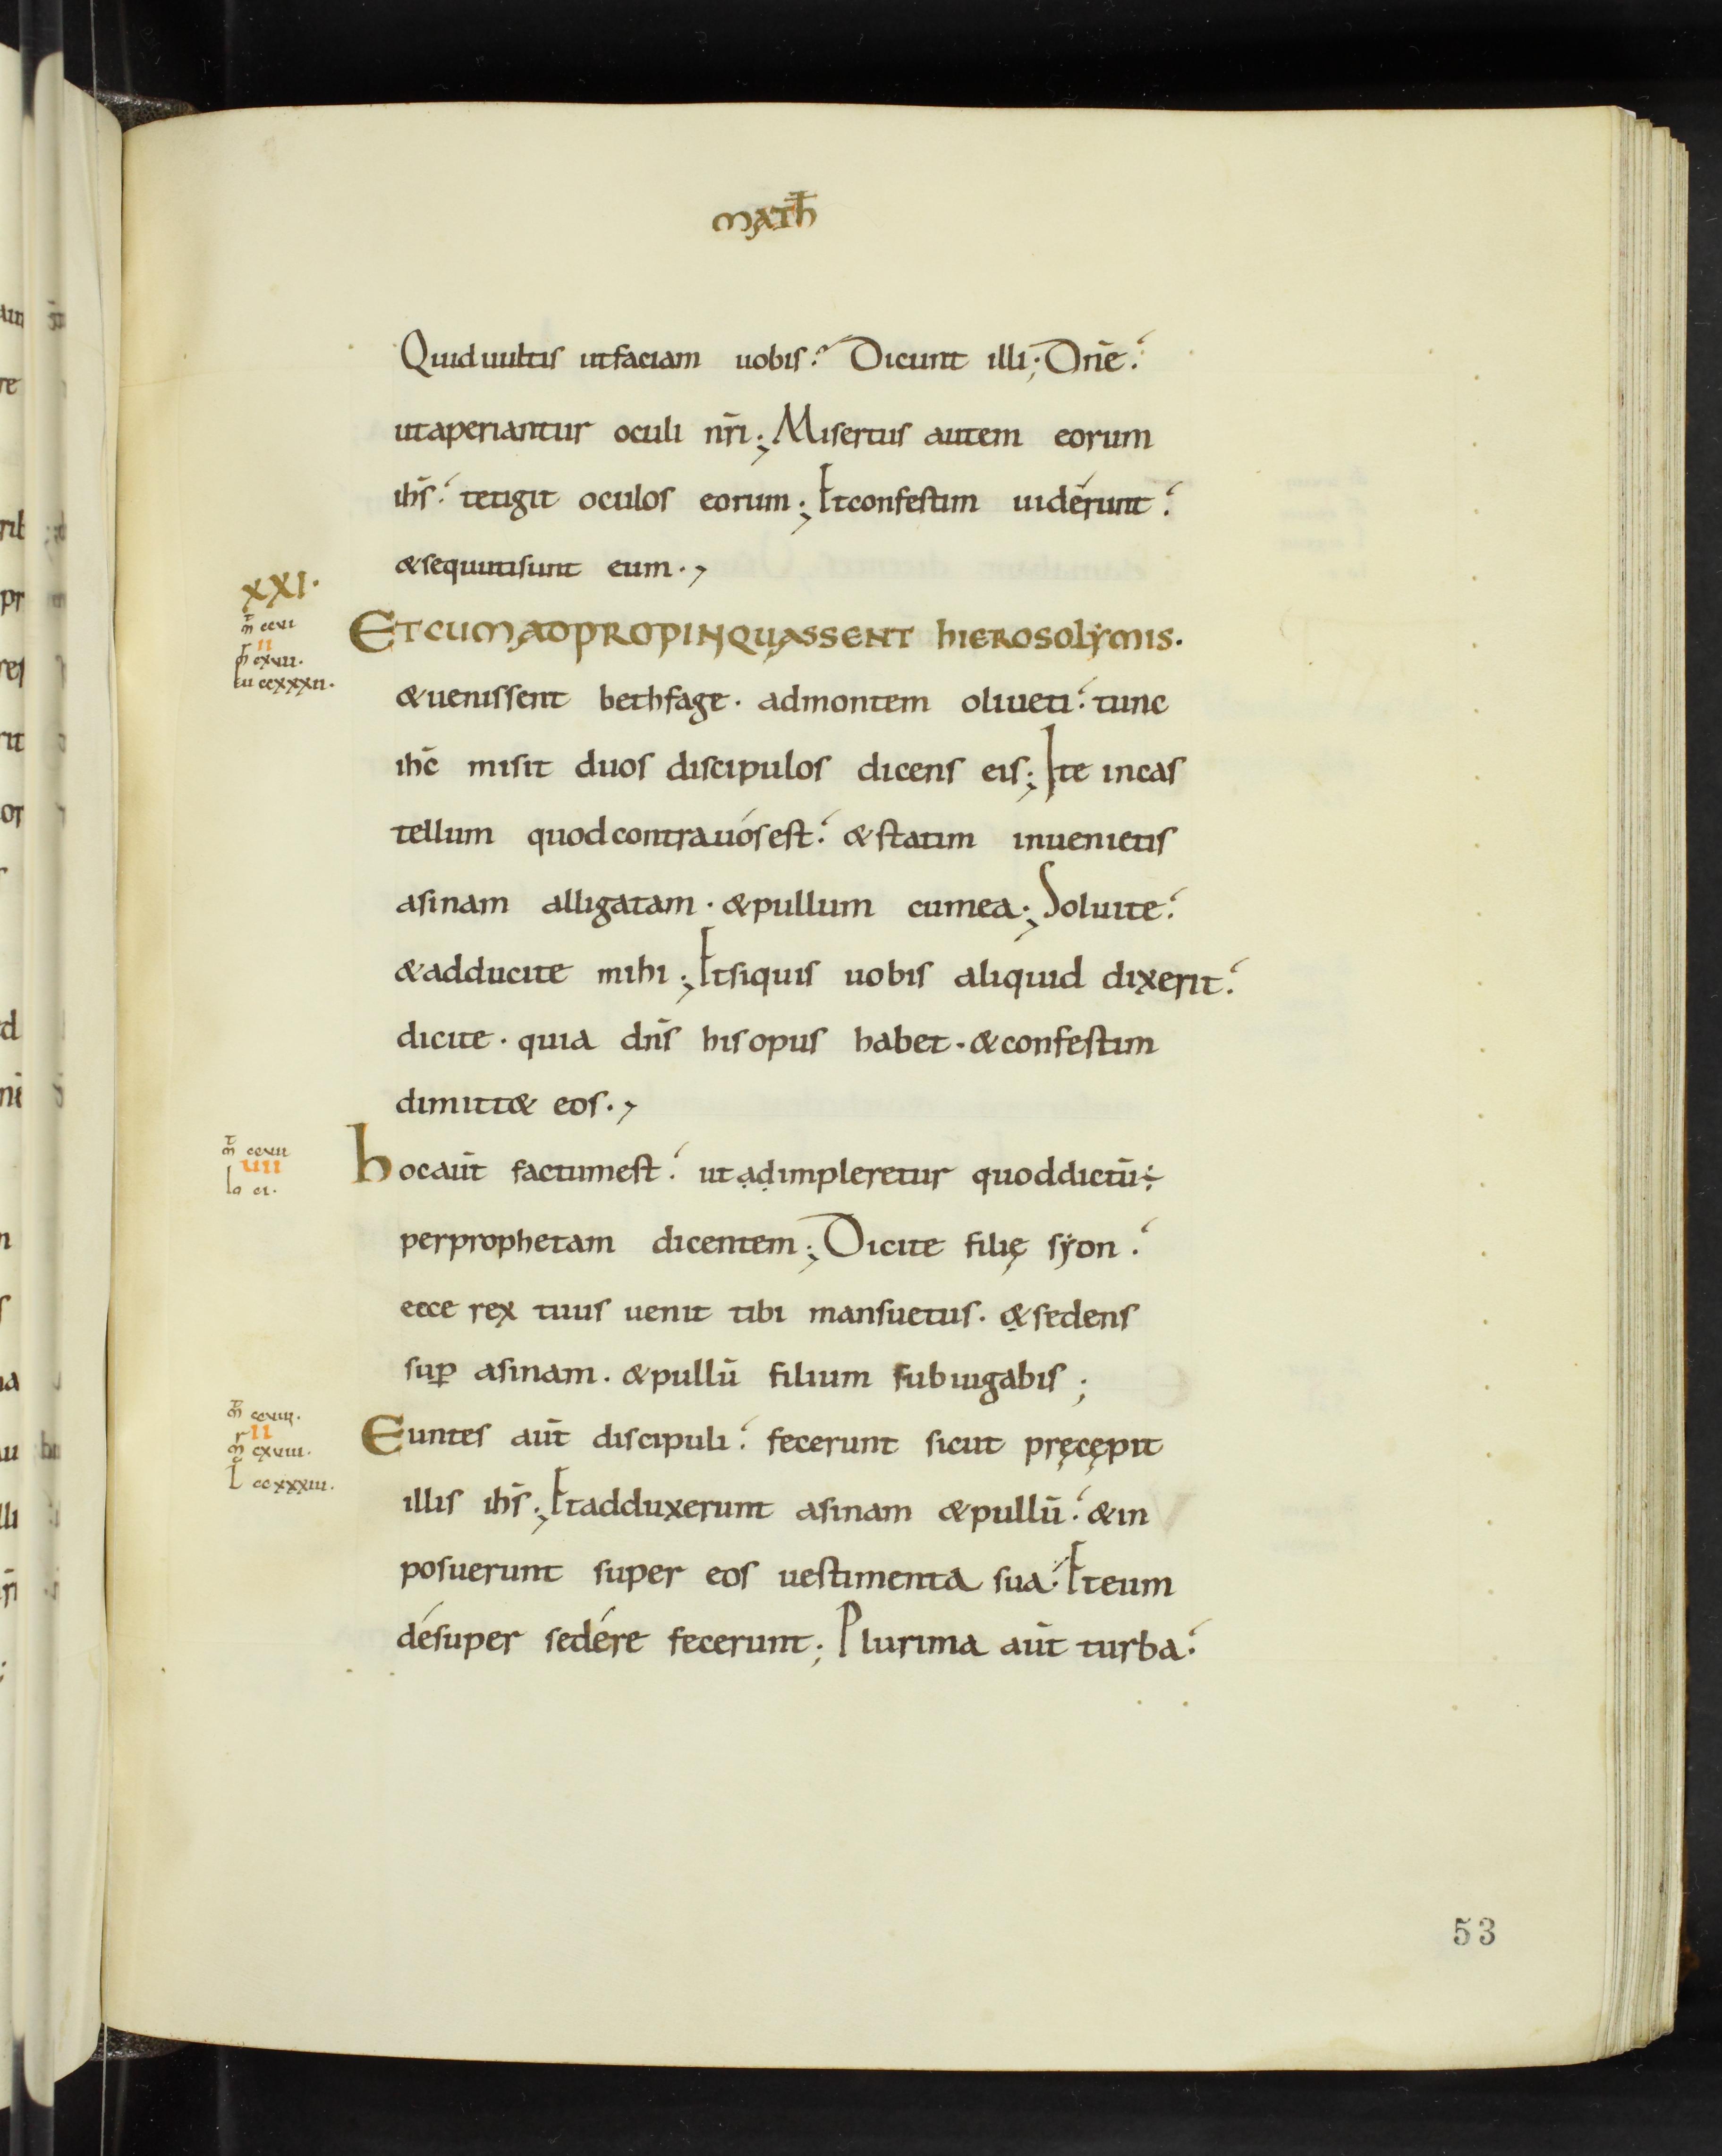 math̄
Quid uultis ut faciam uobis? Dicunt illi; Dn̄e.
ut aperiantur oculi nr̄i; Misertus autem eorum
ihs̄. tetigit oculos eorum; Et confestim uidérunt.
& sequuti sunt eum.,
XXI.
m̄t ccvi
II
mr cxvii.
Lu ccxxxii.
ET CUM ADPROPINQUASSENT HIEROSOLẎMIS.
& uenissent bethfage. ad montem oliueti. tunc
ihc̄ misit duos discipulos dicens eis; Ite in cas
tellum quod contra uós est. & statim inuenietis
asinam alligatam. & pullum cum ea; Soluite.
& adducite mihi; Et si quis uobis aliquid dixerit.
dicite. quia dn̄s his opus habet. & confestim
dimitt& eos.,
m̄t ccvii
VII
Io ci.
hoc aūt factum est. ut ạḍimpleretur quod dictū ÷
per prophetam dicentem; Dicite filię sẏon.
ecce rex tuus uenit tibi mansuetus. &̣ sedens
sup̱ asinam. & pullū filium subiugabis;
m̄t ccviii.
II
mr cxviii.
L ccxxxiii.
Euntes aūt discipuli. fecerunt sicut pręcępit
illis ihs̄; Et adduxerunt asinam & pullū. & in
posuerunt super eos uestimenta sua. Et eum
désuper sedére fecerunt; Plurima aūt turba.
53